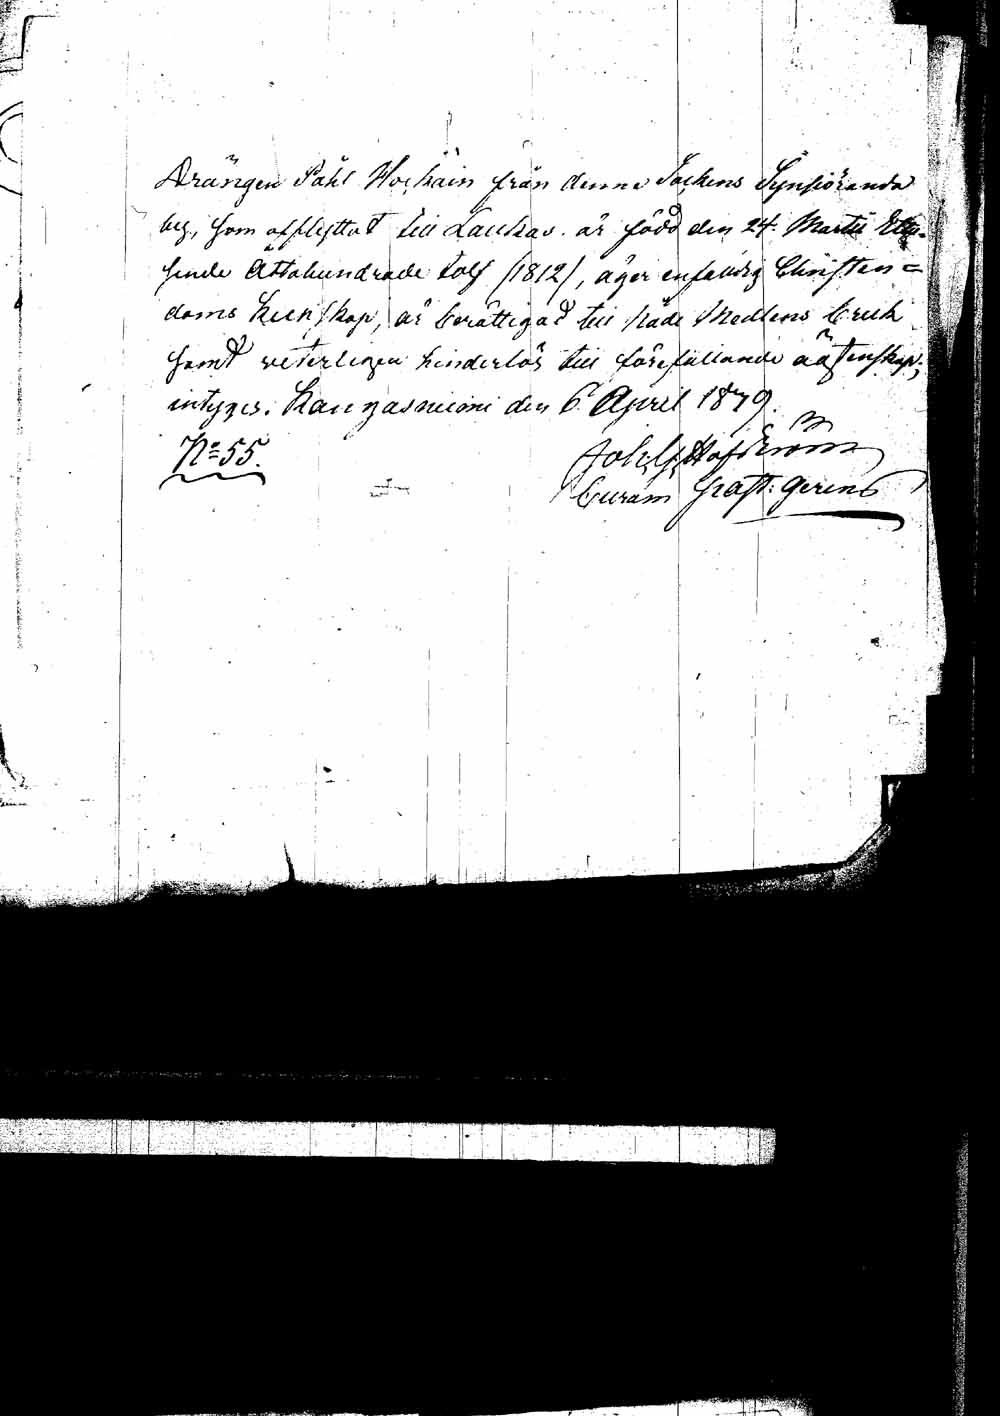 Drängen Påhl Hockain från denne Sockens Synsiö
by, som afflyttat till Laukas. är född den 24 Martii Ettu-
sende Åttahundrade tolf /1812/, äger enfaldig Christen=
doms kunskap, är berättigad till Nåde Medlens bruk
samt veterligen hinderlös till förefallande äktenskap;
intyges. Kangasniemi den 6 April 1879.
No 55.
Adolf Hofström
Curam past: gerens